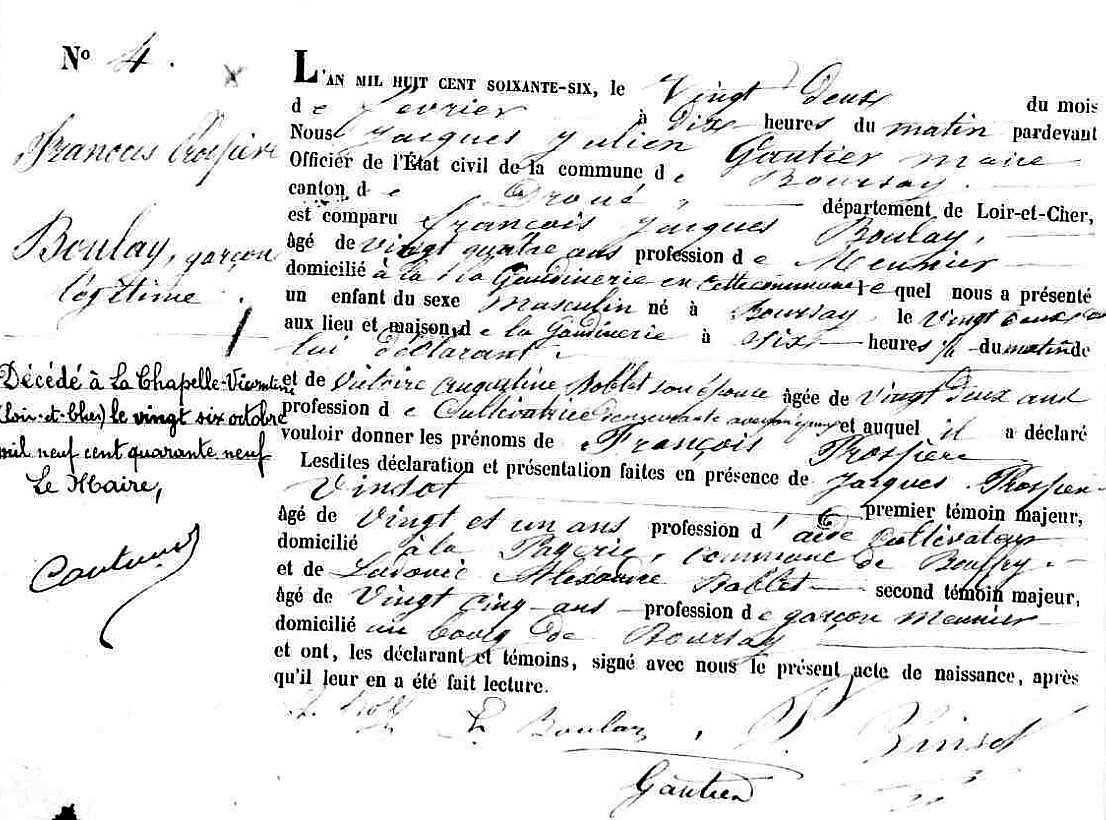 N° 4.
François Prospère
Boulay, garçon
légitime.
1
Décédé à La Chapelle-Vicomtesse
(Loir-et-Cher) le vingt six octobre
mil neuf cent quarante neuf
Le Maire,
L'AN MIL HUIT CENT SOIXANTE-SIX, le Vingt deux du mois
de février à Dix heures du matin pardevant
Nous Jacques Julien Gautier maire
Officier de l'État civil de la commune de Boursay.
canton de Droué, département de Loir-et-Cher,
est comparu François Jacques Boulay,
âgé de vingt quatre ans profession de Meunier
domicilié à la Gaudinerie en cette commune lequel nous a présenté
un enfant du sexe masculin né à Boursay le vingt deux
aux lieu et maison de la Gaudinerie à six heures 1/2 du matin de
lui déclarant.
et de Victoire Augustine Roblet son épouse âgée de vingt deux ans
profession de Cultivatrice et auquel il a déclaré
vouloir donner les prénoms de François Prospère
Lesdites déclaration et présentation faites en présence de Jacques Prosper
Vinsot premier témoin majeur,
âgé de vingt et un ans profession d'aide cultivateur
domicilié à la Pagerie, commune de Bouffry.
et de Ludovic Alexandre Roblet second témoin majeur,
âgé de vingt cinq ans profession de garçon meunier
domicilié au bourg de Boursay
et ont, les déclarant et témoins, signé avec nous le présent acte de naissance, après
qu'il leur en a été fait lecture.
Boulay, P. Vinsot
Gautier